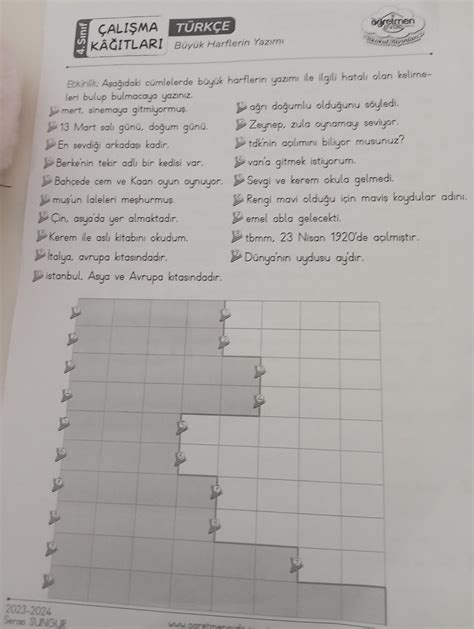 4. Sınıf
ÇALIŞMA
KÂĞITLARI
TÜRKÇE
Büyük Harflerin Yazımı
öğretmen
Etkinlik: Aşağıdaki cümlelerde büyük harflerin yazımı ile ilgili hatalı olan kelime-
leri bulup bulmacaya yazınız.
mert, sinemaya gitmiyormuş.
13 Mart salı günü, doğum günü.
En sevdiği arkadaşı kadir.
Berke'nin tekir adlı bir kedisi var.
Bahçede cem ve Kaan oyun oynuyor.
muş'un laleleri meşhurmuş.
Çin, asya'da yer almaktadır.
Kerem ile aslı kitabını okudum.
İtalya, avrupa kıtasındadır.
istanbul, Asya ve Avrupa kıtasındadır.
ağrı doğumlu olduğunu söyledi.
Zeynep, zula oynamayı seviyor.
tdk'nin açılımını biliyor musunuz?
van'a gitmek istiyorum.
Sevgi ve kerem okula gelmedi.
Rengi mavi olduğu için maviş koydular adını.
emel abla gelecekti.
tbmm, 23 Nisan 1920'de açılmıştır.
Dünya'nın uydusu ay'dır.
2023-2024
SUNGUR